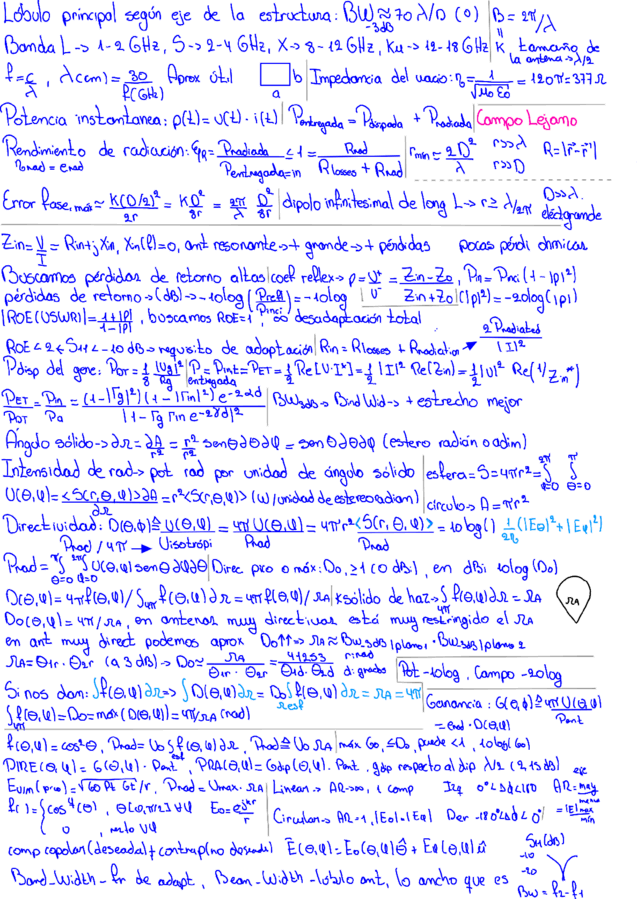 Lóbulo principal según eje de la estructura: BW-3dB ≈ 70 λ/D (º) | B = 2π/λ
Banda L -> 1-2 GHz, S -> 2-4 GHz, X -> 8-12 GHz, Ku -> 12-18 GHz | K tamaño de la antena -> λ/2
f = c/λ, λ(cm) = 30/f(GHz) Aprox útil a b | Impedancia del vacío: η = 1/√μ0 ε0 = 120π = 377 Ω
Potencia instantanea: p(t) = v(t) · i(t) | Pentregada = Pdisipada + Pradiada | Campo Lejano
Rendimiento de radiación: ξR = Pradiada/Pentregada=in ≤ 1 = Rrad/Rlosses + Rrad | rmin ≈ 2D²/λ r>>λ r>>D R = |r⃗-r⃗'|
ηrad = erad
Error fase, máx ≈ K(D/2)²/2r = KD²/8r = 2π/λ D²/8r | dipolo infinitesimal de long L -> r ≥ λ/2π D>>λ eléctgrande
Zin = V/I = Rin + jXin, Xin(f)=0, ant resonante -> + grande -> + pérdidas pocas pérdi ohmicas
Buscamos pérdidas de retorno altas | coef reflex -> ρ = V⁺/V⁻ = Zin-Z0/Zin+Z0, Pin = Pinci (1-|ρ|²)
pérdidas de retorno -> (dB) -> -10log (Prefl/Pinci) = -10log (|ρ|²) = -20log(|ρ|)
|ROE(VSWR)| = 1+|ρ|/1-|ρ|, buscamos ROE=1, ∞ desadaptación total
ROE < 2 <- S11 < -10 dB -> requisito de adaptación | Rin = Rlosses + Rradiation -> 2Pradiated/|I|²
Pdisp del gene: PDT = 1/8 |Vg|²/Rg | Pentregada = Pint = PET = 1/2 Re[V·I*] = 1/2 |I|² Re(Zin) = 1/2 |V|² Re(1/Zin*)
PET/PDT = Pin/Pa = (1-|Γg|²)(1-|Γin|²) e^-2αd/|1-Γg Γin e^-2γd|² | BW3dB -> BindWid -> + estrecho mejor
Ángulo sólido -> ∂Ω = ∂A/r² = r²/r² senθ∂θ∂φ = senθ∂θ∂φ (estero radián o adim)
Intensidad de rad -> pot rad por unidad de ángulo sólido | esfera = S = 4πr² = ∫φ=0 2π ∫θ=0 π
U(θ,φ) = <S(r,θ,φ)>∂A/∂Ω = r²<S(r,θ,φ)> (W/unidad de estereoradiam) | círculo -> A = πr²
Directividad: D(θ,φ) ≜ U(θ,φ)/Prad/4π -> Uisotrópi = 4πU(θ,φ)/Prad = 4πr²<S(r,θ,φ)>/Prad = 10log() 1/2η (|Eθ|²+|Eφ|²)
Prad = ∫θ=0 π ∫φ=0 2π U(θ,φ) senθ ∂θ∂φ | Direc pico o máx: D0, ≥1 (0 dBi), en dBi 10log(D0)
D(θ,φ) = 4πf(θ,φ)/∫4π f(θ,φ)∂Ω = 4πf(θ,φ)/ΩA | ∢ sólido de haz -> ∫4π f(θ,φ)∂Ω = ΩA ΩA
D0(θ,φ) = 4π/ΩA, en antenas muy directivas está muy restringido el ΩA
en ant muy direct podemos aprox D0↑↑ -> ΩA ≈ BW3dB|plano1 · BW3dB|plano 2
ΩA = θ1r · θ2r (a 3 dB) -> D0 ≈ ΩA/θ1r · θ2r = 41253/θ1d·θ2d r:rad d: grados | Pot -10log, Campo -20log
Si nos dan: ∫f(θ,φ)∂Ω => ∫D(θ,φ)∂Ω = D0∫esf f(θ,φ)∂Ω = ΩA = 4π | Ganancia: G(θ,φ) ≜ 4πU(θ,φ)/Pent = erad · D(θ,φ)
∫f(θ,φ) = D0 = máx(D(θ,φ)) = 4π/ΩA (rad)
f(θ,φ) = cos²θ, Prad = U0 ∫esf f(θ,φ)∂Ω, Prad ≜ U0 ΩA | máx G0, ≤D0, puede <1, 10log(G0)
PIRE(θ,φ) = G(θ,φ) · Pent, PRA(θ,φ) = Gdip(θ,φ) · Pent, gdip respecto al dip λ/2 (2,15 dB)
EV/m (pico) = √60 Pt Gt/r, Prad = Umax · ΩA | Linear -> AR -> ∞, 1 comp Izq 0°<Δδ<180 AR = eje may/menor = |E|max/min
f( ) = {cos⁴(θ), θ[0,π/2] ∀φ E0 = e^jkr/r | Circular -> AR=1, |Eθ|=|Eφ| Der -180°<Δδ<0°
0, resto ∀φ
comp copolar (deseada) + contrap (no deseada) E⃗(θ,φ) = Eθ(θ,φ)θ̂ + Eφ(θ,φ)û S11(dB) -10 -20
Band-Width - fr de adapt, Bean-Width - lóbulo ant, lo ancho que es BW = f2-f1